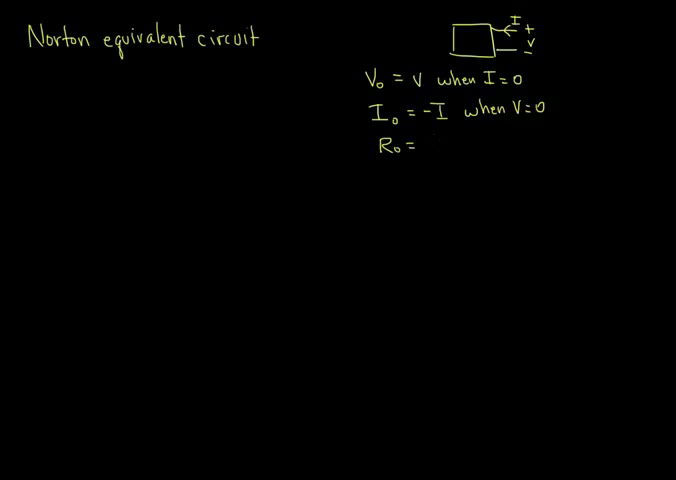 Norton equivalent circuit
I
+
V
-
V₀ = V when I = 0
I₀ = -I when V = 0
R₀ =